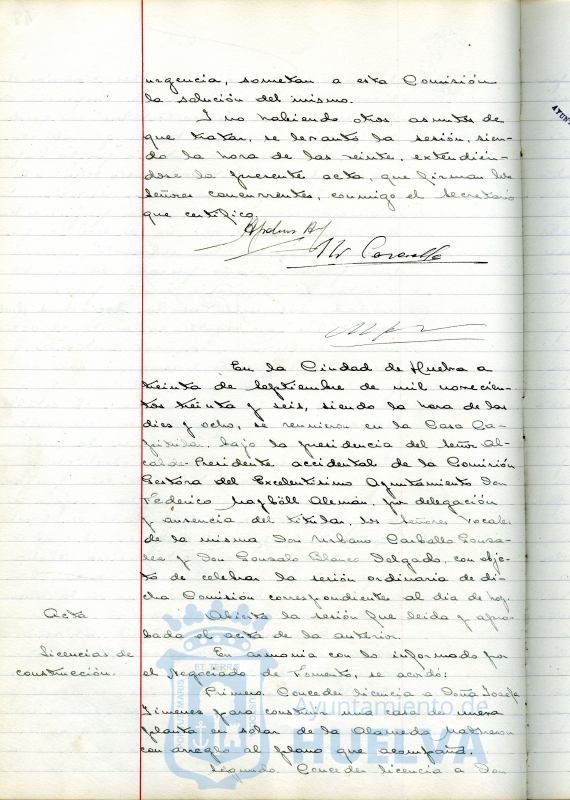 urgencia, sometan a esta Comisión
la solución del mismo.
Y no habiendo otros asuntos de
que tratar, se levantó la sesión, sien-
do la hora de las veinte, extendién-
dose la presente acta, que firman los
señores concurrentes, conmigo el Secretario
que certifico.
En la Ciudad de Huelva a
treinta de Septiembre de mil novecien-
tos treinta y seis, siendo la hora de las
diez y ocho, se reunieron en la Casa Ca-
pitular, bajo la presidencia del señor Al-
calde-Presidente accidental de la Comisión
Gestora del Excelentísimo Ayuntamiento Don
Federico Mayböll Alemán, por delegación
y ausencia del titular, los señores Vocales
de la misma Don Urbano Carballo Gonza-
lez y Don Gonzalo Blanco Delgado, con obje-
to de celebrar la sesión ordinaria de di-
cha Comisión correspondientes al dia de hoy.
Acta
Abierta la sesión fue leida y apro-
bada el acta de la anterior.
Licencias de
construcción.
En armonia con lo informado por
el Negociado de Fomento, se acordó:
Primero. Conceder licencia a Doña Josefa
Jimenez para construir una casa de nueva
planta en solar de la Alameda
con arreglo al plano que acompaña.
Segundo. Conceder licencia a Don
Ayuntamiento de
HUELVA